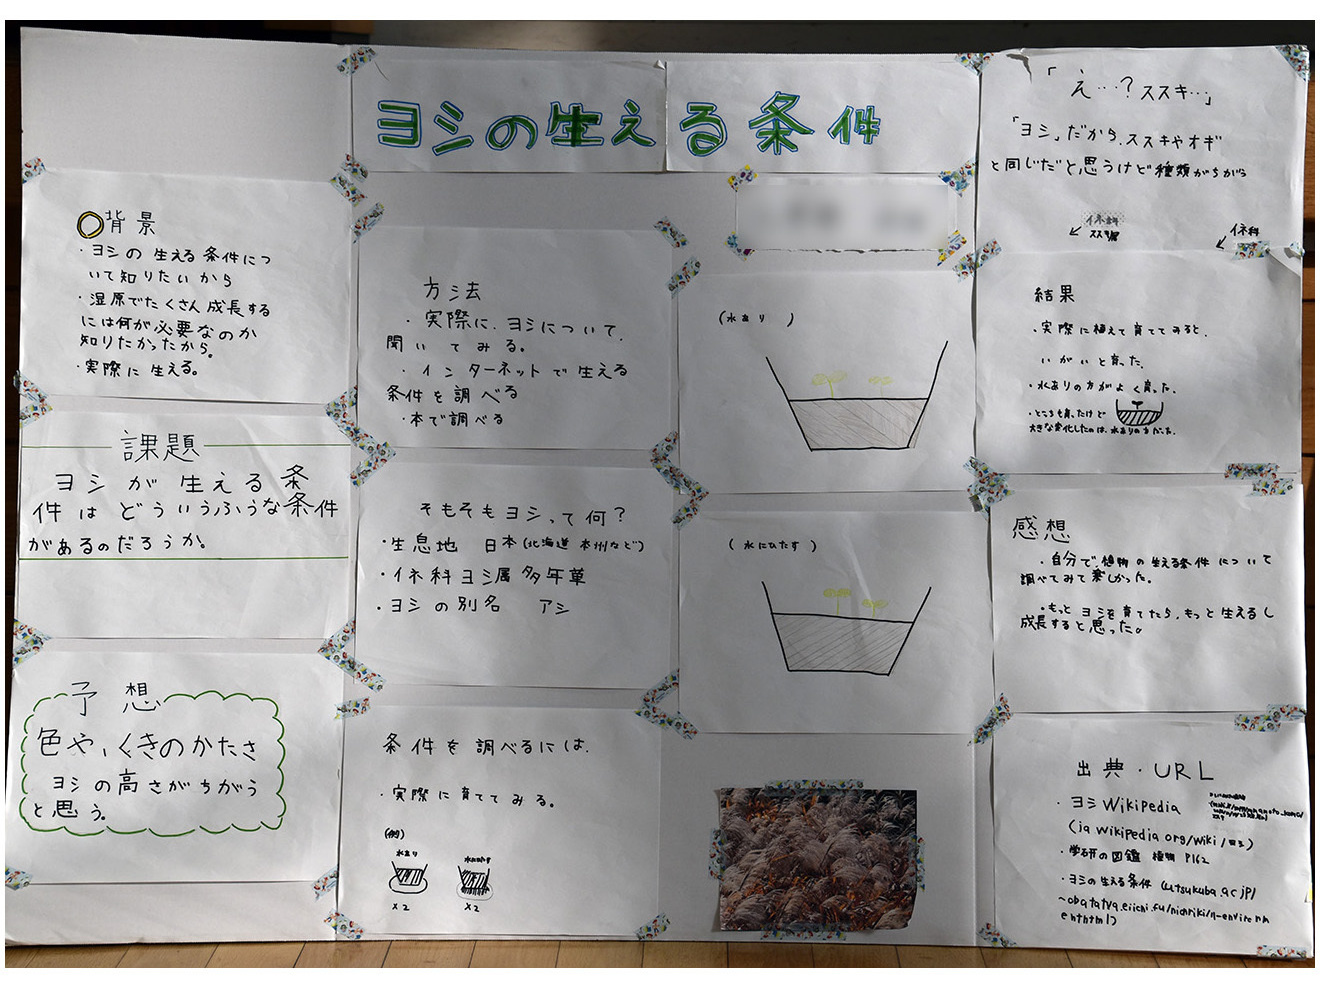 ヨシの生える条件
◯背景
・ヨシの生える条件につ
いて知りたいから
・湿原でたくさん成長する
には何が必要なのか
知りたかったから。
・実際に生える。
課題
ヨシが生える条
件はどういうふうな条件
があるのだろうか。
予想
色や、くきのかたさ
ヨシの高さがちがう
と思う。
方法
・実際に、ヨシについて、
聞いてみる。
・インターネットで生える
条件を調べる
・本で調べる
そもそもヨシって何?
・生息地 日本(北海道 本州など)
・イネ科ヨシ属 多年草
・ヨシの別名 アシ
条件を調べるには、
・実際に育ててみる。
(例)
水あり
×2
×2
(水あり)
(水にひたす)
「え…?ススキ…」
「ヨシ」だから、ススキやオギ
と同じだと思うけど種類がちがう
イネ科
ススキ属
イネ科
結果
・実際に植えて育ててみると、
いがいと育った。
・水ありの方がよく育った。
・どこも育ったけど
大きな変化したのは、水ありの方だった。
感想
・自分で、植物の生える条件について
調べてみて楽しかった。
・もっとヨシを育てたら、もっと生えるし
成長すると思った。
出典・URL
・ヨシWikipedia
(ja wikipedia org/wiki/ヨシ)
・学研の図鑑 植物 P162
・ヨシの生える条件 (u.tsukuba.ac.jp/